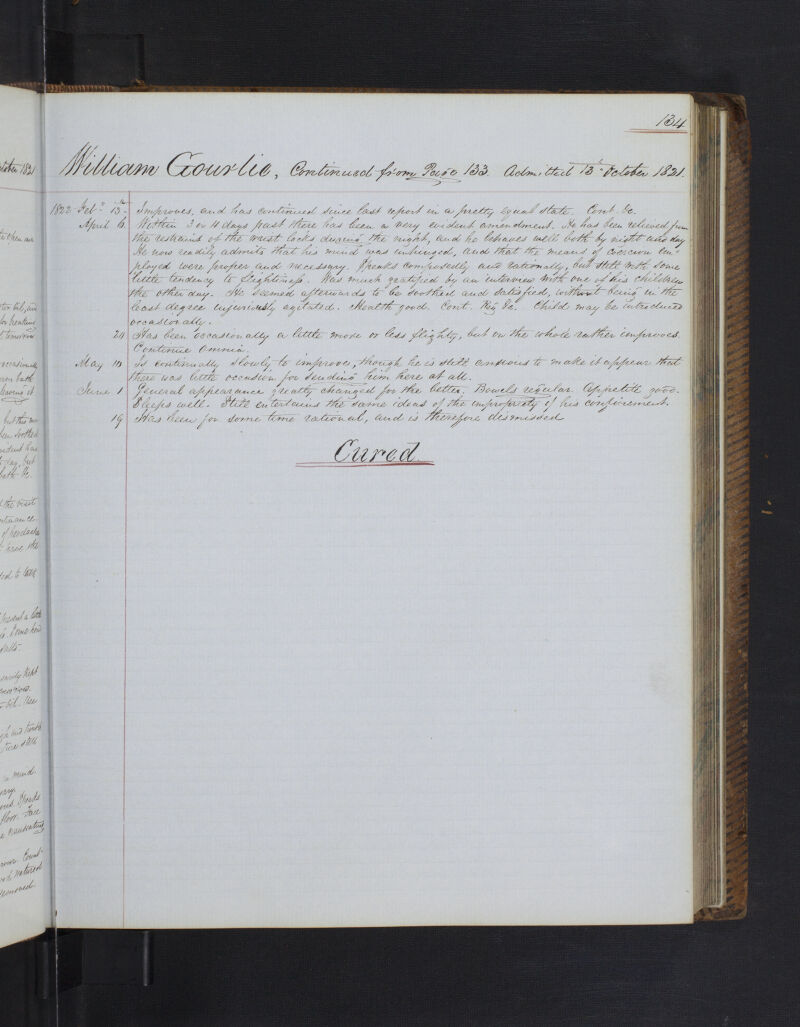 134
William Gourlie, Continued from Page 133. Admitted 13th October 1821.
1822 Feby 13th Improves, and has continued since last report in a pretty equal state. Cont. &c.
April 6. Within 3 or 4 days past there has been a very evident amendment. He has been relieved from
the restrains of the wrist locks during the night, and he behaves well both by night and day.
He now readily admits that his mind was unhinged, and that the means of coercion em-
ployed were proper and necessary. Speaks composedly and rationally, but still with some
little tendency to flightiness. Was much gratified by an interview with one of his children
the other day. He seemed afterwards to be soothed and satisfied, without being in the
least degree injuriously agitated. Health good. Cont. &c. Child may be introduced
occasionally.
24 Has been occasionally a little more or less flighty, but on the whole rather improves.
Continue omnia.
May 10 Is continually slowly to improve, though he is still anxious to make it appear that
there was little occasion for sending him here at all.
June 1 General appearance greatly changed for the better. Bowels regular. Appetite good.
Sleeps well. Still entertains the same ideas of the impropriety of his confinement.
19 Has been for some time rational, and is therefore dismissed
Cured